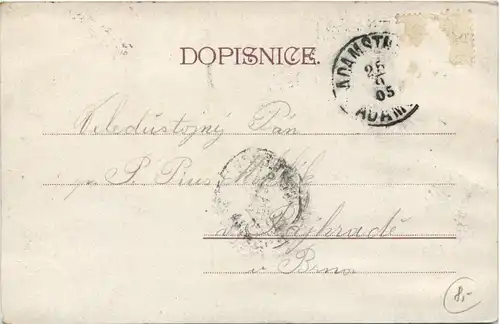 DOPISNICE.
ADAMSTH
25
9
05
ADAM
Veledůstojný Pán
P. Pius
v Rajhradě
u Brna
8,-